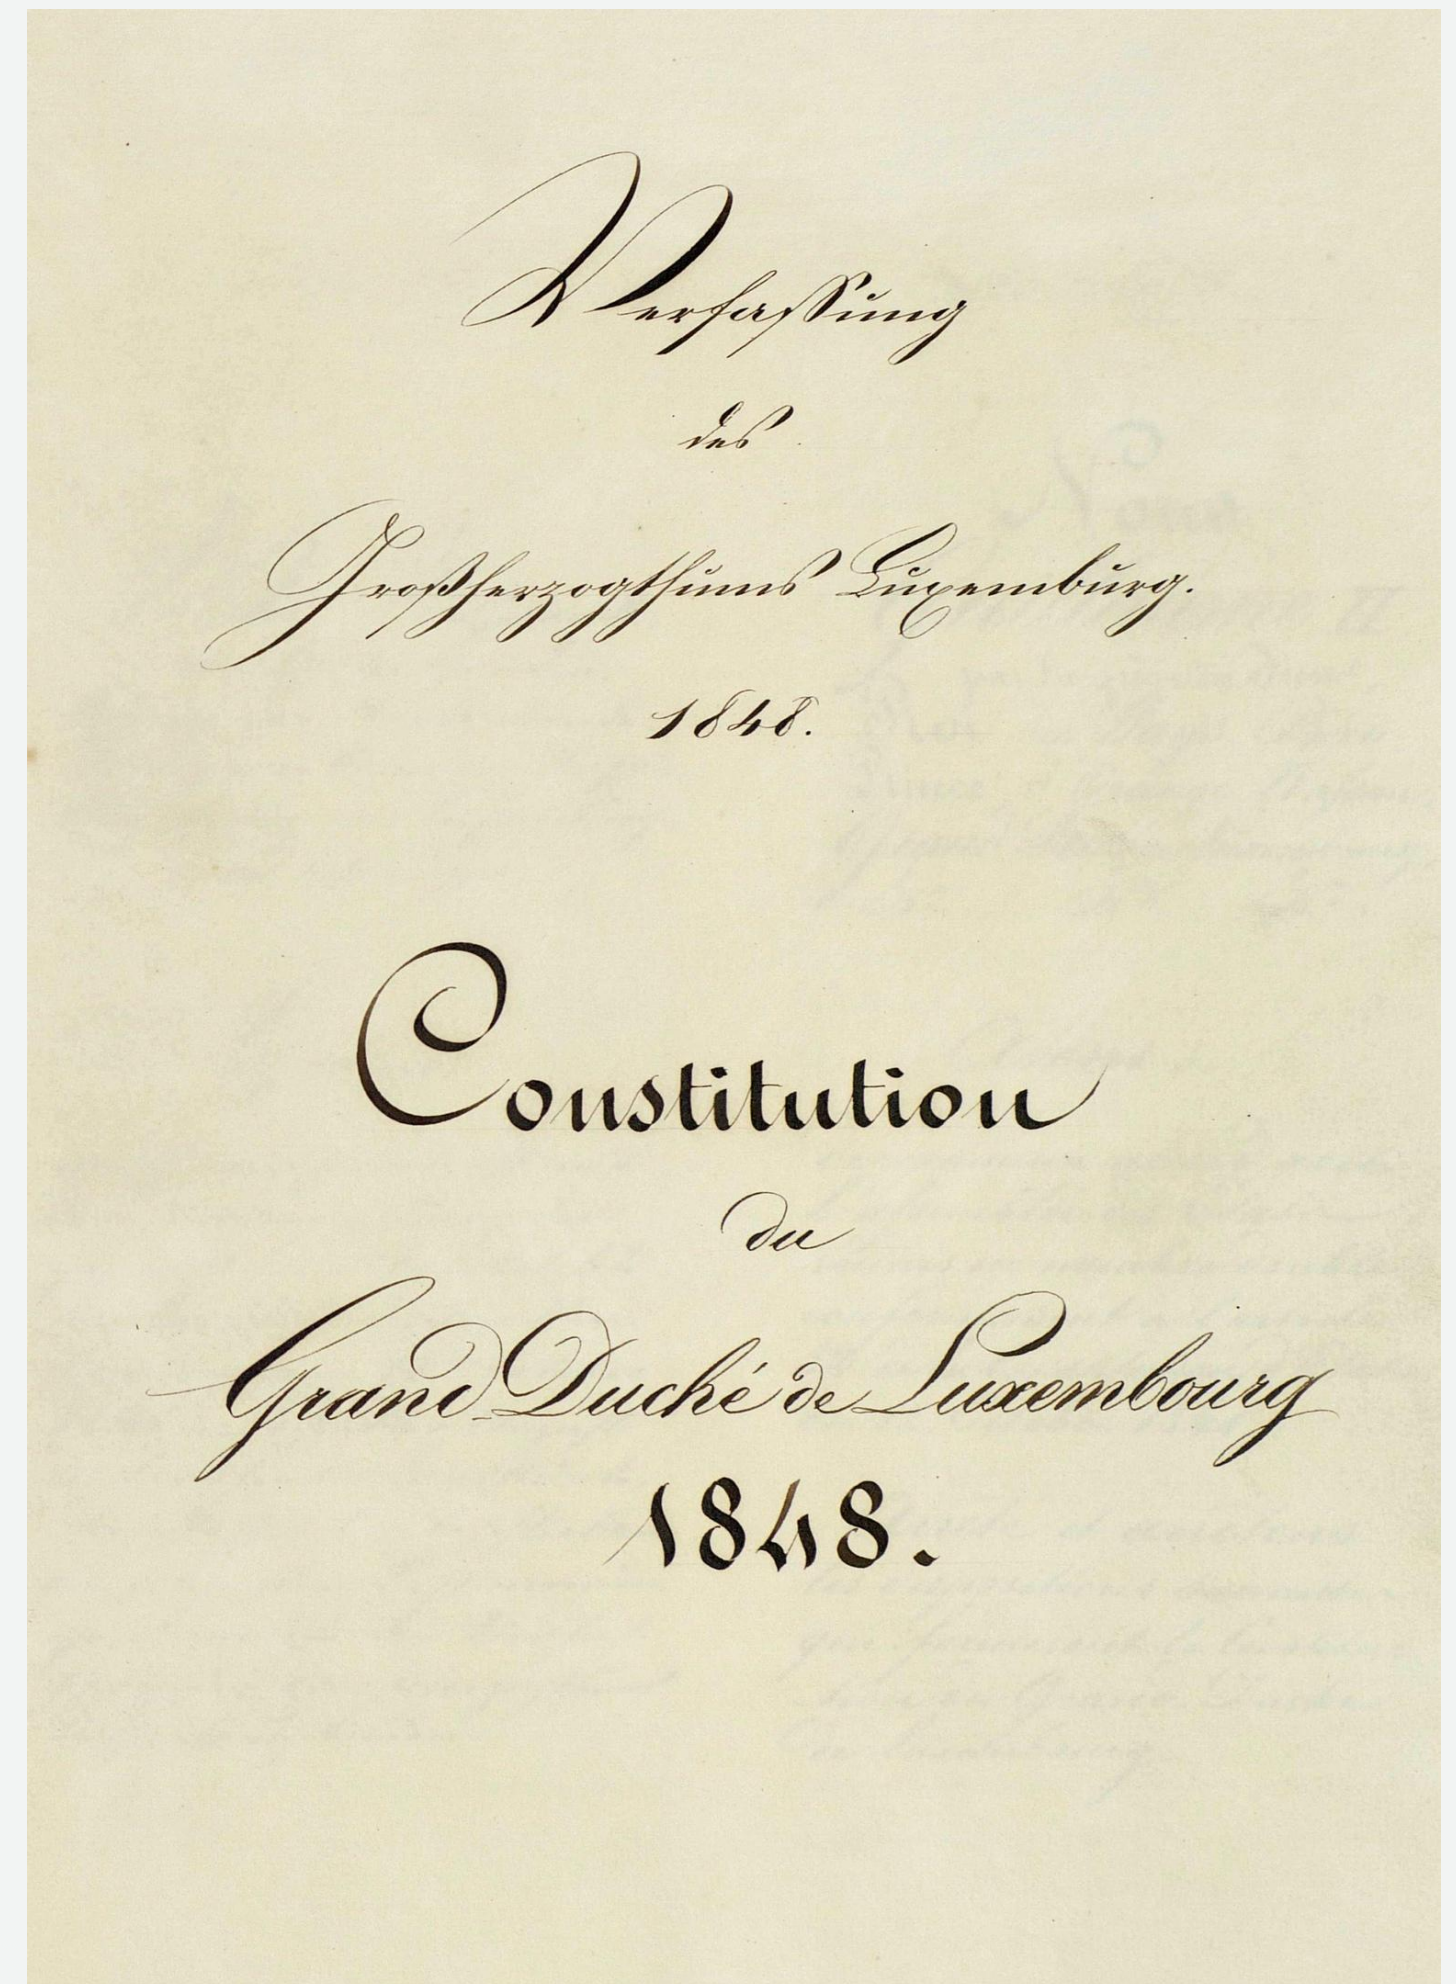 Verfassung
des
Großherzogthums Luxemburg.
1848.
Constitution
du
Grand-Duché de Luxembourg
1848.